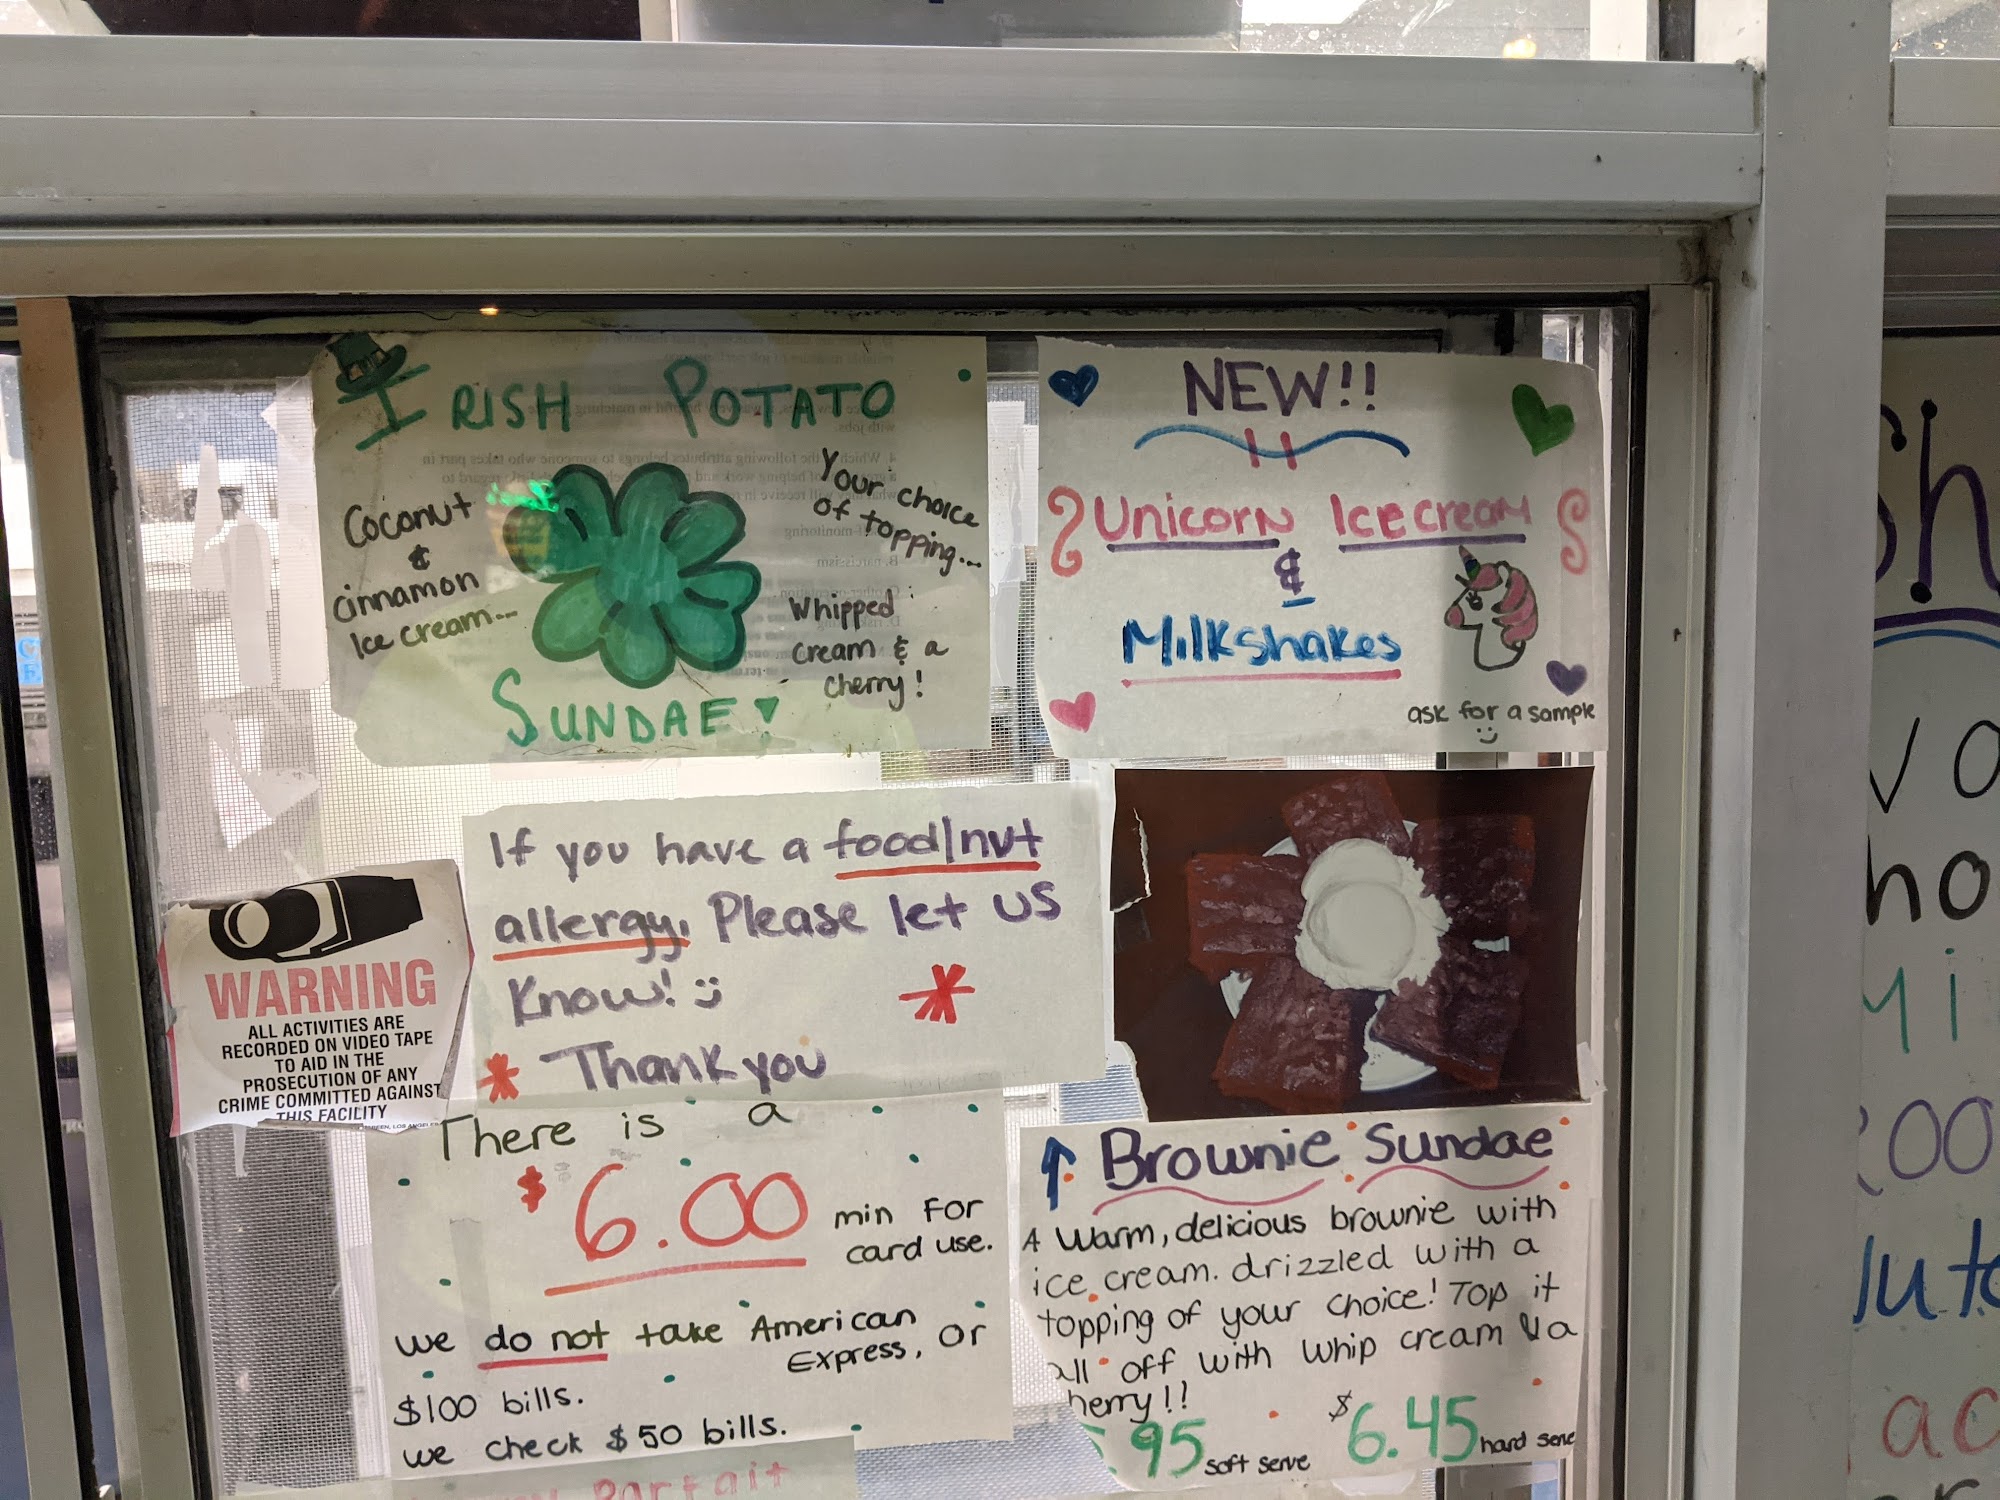 IRISH POTATO
Coconut
&
cinnamon
Ice cream...
Your choice
of topping...
Whipped
cream & a
cherry!
SUNDAE!
NEW!!
Unicorn Ice cream
&
Milkshakes
ask for a sample
If you have a food/nut
allergy, Please let us
Know!
Thank you
WARNING
ALL ACTIVITIES ARE
RECORDED ON VIDEO TAPE
TO AID IN THE
PROSECUTION OF ANY
CRIME COMMITTED AGAINST
THIS FACILITY
There is a
$6.00 min for
card use.
we do not take American
Express, or
$100 bills.
we check $50 bills.
Parfait
Brownie Sundae
A warm, delicious brownie with
ice cream. drizzled with a
topping of your choice! Top it
all off with whip cream & a
herry!!
.95 soft serve $6.45 hard serve